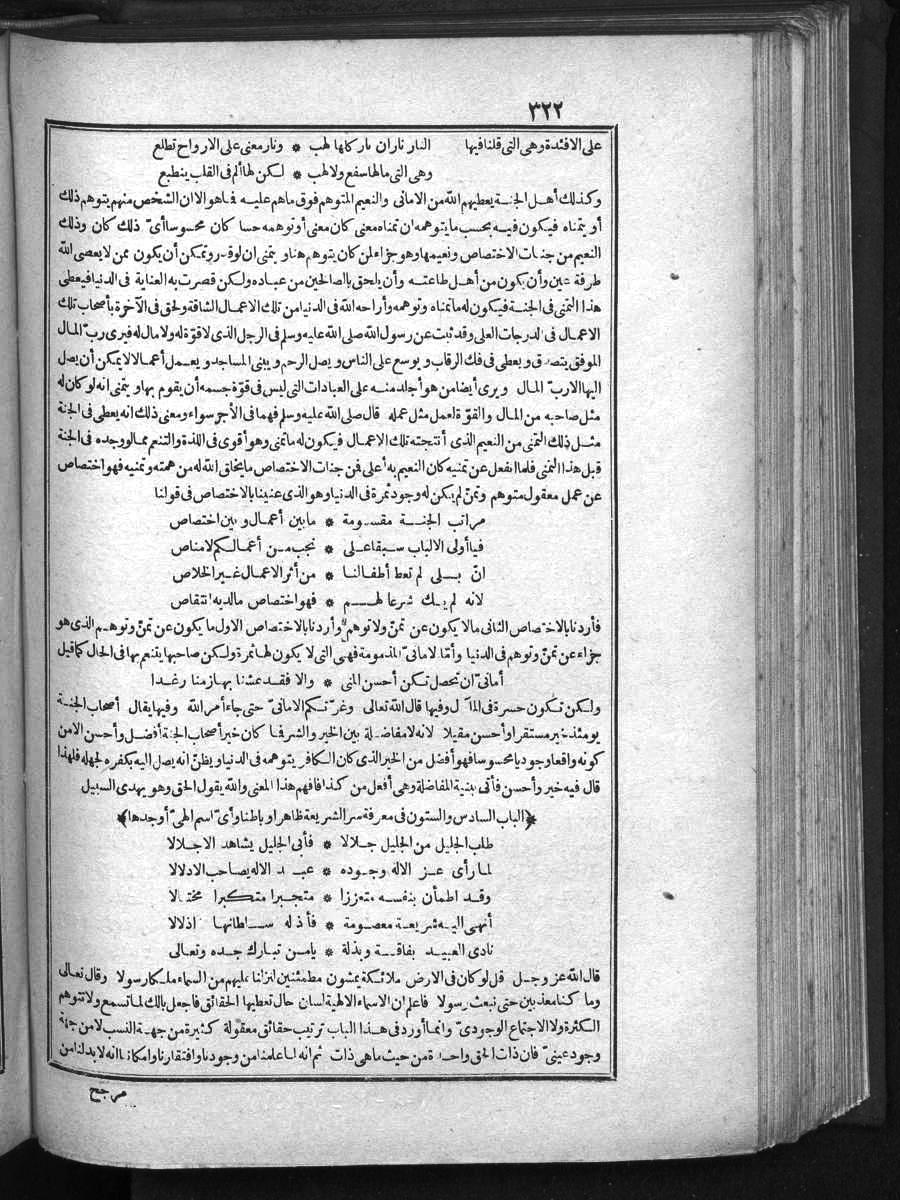 ٣٢٢
على الافئدة وهى التى قلنا فيها النار ناران نار كلها لهب * ونار معنى على الارواح تطلع
وهى التى مالها سفع ولا لهب * لكن لها ألم فى القلب ينطبع
وكذلك أهل الجنة يعطيهم الله من الامانى والنعيم المتوهم فوق ماهم عليه فماهو الا ان الشخص منهم يتوهم ذلك
أو يتمناه فيكون فيه بحسب مايتوهمه ان تمناه معنى كان معنى أو توهمه حسا كان محسوسا أىّ ذلك كان وذلك
النعيم من جنات الاختصاص ونعيمها وهو جزاء لمن كان يتوهم هنا ويتمنى ان لو قدر وتمكن أن يكون ممن لا يعصى الله
طرفة عين وأن يكون من أهل طاعته وأن يلحق بالصالحين من عباده ولكن قصرت به العناية فى الدنيا فيعطى
هذا التمنى فى الجنة فيكون له ماتمناه وتوهمه وأراحه الله فى الدنيا من تلك الاعمال الشاقة ولحق فى الآخرة بأصحاب تلك
الاعمال فى الدرجات العلى وقد ثبت عن رسول الله صلى الله عليه وسلم فى الرجل الذى لا قوّة له ولا مال له فيرى ربّ المال
الموفق يتصدق ويعطى فى فك الرقاب ويوسع على الناس ويصل الرحم ويبنى المساجد ويعمل أعمالا لا يمكن أن يصل
اليها الا ربّ المال ويرى أيضا من هو أجلد منه على العبادات التى ليس فى قوّة جسمه أن يقوم بها ويتمنى انه لو كان له
مثل صاحبه من المال والقوّة لعمل مثل عمله قال صلى الله عليه وسلم فهما فى الأجر سواء ومعنى ذلك انه يعطى فى الجنة
مثل ذلك التمنى من النعيم الذى أنتجته تلك الاعمال فيكون له ماتمنى وهو أقوى فى اللذة والتنعم مما لو وجده فى الجنة
قبل هذا التمنى فلما انفعل عن تمنيه كان النعيم به أعلى فمن جنات الاختصاص مايخلق الله له من همته وتمنيه فهو اختصاص
عن عمل معقول متوهم وتمنّ لم يكن له وجود ثمرة فى الدنيا وهو الذى عنينا بالاختصاص فى قولنا
مراتب الجنة مقسومة * مابين أعمال وبين اختصاص
فيا أولى الالباب سبقا على * نجب من أعمالكم لا مناص
انّ بلى لم تعط أطفالنا * من أثر الاعمال غير الخلاص
لانه لم يك شرعا لهم * فهو اختصاص مالديه انتقاص
فأردنا بالاختصاص الثانى مالا يكون عن تمنّ ولا توهم وأردنا بالاختصاص الاول ما يكون عن تمنّ وتوهم الذى هو
جزاء عن تمنّ وتوهم فى الدنيا وأمّا الامانىّ المذمومة فهى التى لا يكون لها ثمرة ولكن صاحبها يتنعم بها فى الحال كما قيل
أمانىّ ان تحصل تكن أحسن المنى * والا فقد عشنا بها زمنا رغدا
ولكن تكون حسرة فى المآل وفيها قال الله تعالى وغرّتكم الامانىّ حتى جاء أمر الله وفيها يقال أصحاب الجنة
يومئذ خير مستقرا وأحسن مقيلا لانه لا مفاضلة بين الخير والشر فما كان خير أصحاب الجنة أفضل وأحسن الا من
كونه واقعا وجوديا محسوسا فهو أفضل من الخير الذى كان الكافر يتوهمه فى الدنيا ويظنّ انه يصل اليه بكفره لجهله فلهذا
قال فيه خير وأحسن فأتى ببنية المفاضلة وهى أفعل من كذا فافهم هذا المعنى والله يقول الحق وهو يهدى السبيل
﴿الباب السادس والستون فى معرفة سر الشريعة ظاهرا وباطنا وأىّ اسم الهىّ أوجدها﴾
طلب الجليل من الجليل جلالا * فأبى الجليل يشاهد الاجلالا
لما رأى عز الاله وجوده * عبد الاله يصاحب الادلالا
وقد اطمأن بنفسه متعززا * متجبرا متكبرا مختالا
أنهى اليه شريعة معصومة * فأذله سلطانها اذلالا
نادى العبيد بفاقة وبذلة * يامن تبارك جده وتعالى
قال الله عز وجل قل لو كان فى الارض ملائكة يمشون مطمئنين لنزلنا عليهم من السماء ملكا رسولا وقال تعالى
وما كنا معذبين حتى نبعث رسولا فاعلم ان الاسماء الالهية لسان حال تعطيها الحقائق فاجعل بالك لما تسمع ولا تتوهم
الكثرة ولا الاجتماع الوجودىّ وانما أورد فى هذا الباب ترتيب حقائق معقولة كثيرة من جهة النسب لا من جهة
وجود عينىّ فان ذات الحق واحدة من حيث ماهى ذات ثم انه لما علمنا من وجودنا وافتقارنا وامكاننا انه لا بد لنا من
مرجح